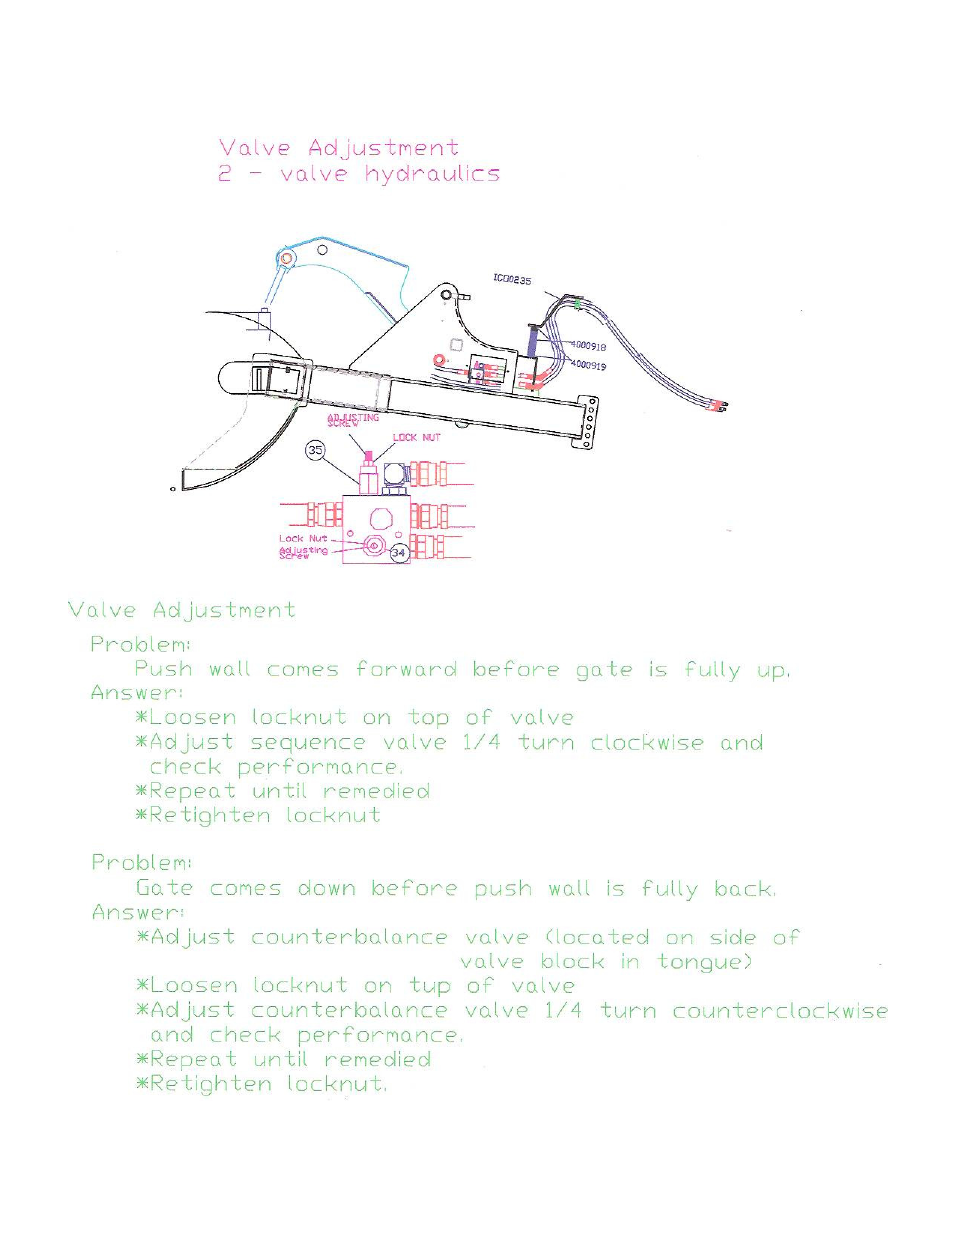 Valve Adjustment
2 - valve hydraulics
IC00235
4000918
4000919
ADJUSTING
SCREW
LOCK NUT
35
Lock Nut
Adjusting
Screw
34
Valve Adjustment
Problem:
Push wall comes forward before gate is fully up.
Answer:
*Loosen locknut on top of valve
*Adjust sequence valve 1/4 turn clockwise and
check performance.
*Repeat until remedied
*Retighten locknut
Problem:
Gate comes down before push wall is fully back.
Answer:
*Adjust counterbalance valve (located on side of
valve block in tongue)
*Loosen locknut on tup of valve
*Adjust counterbalance valve 1/4 turn counterclockwise
and check performance.
*Repeat until remedied
*Retighten locknut.